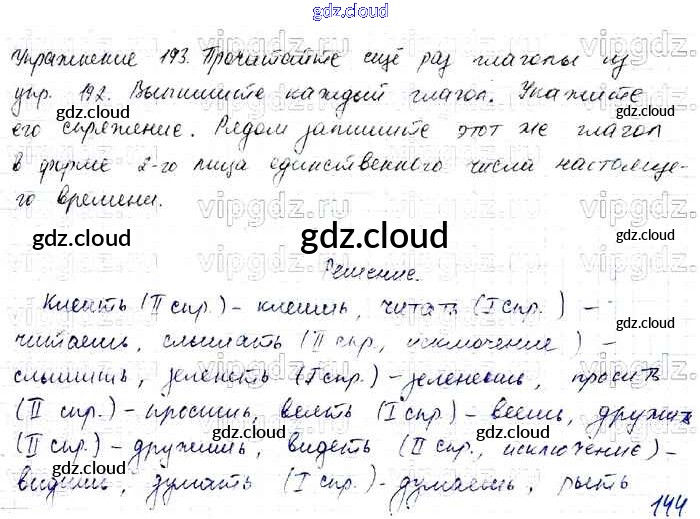 gdz.cloud
Упражнение 193. Прочитайте ещё раз глаголы из
упр. 192. Выпишите каждый глагол. Укажите
его спряжение. Рядом запишите этот же глагол
в форме 2-го лица единственного числа настояще-
го времени.
Решение.
Клеить (II спр.) – клеишь, читать (I спр.) –
читаешь, слышать (II спр., исключение) –
слышишь, зеленеть (I спр.) – зеленеешь, просить
(II спр.) – просишь, веять (I спр.) – веешь, дружить
(II спр.) – дружишь, видеть (II спр., исключение) –
видишь, думать (I спр.) – думаешь, рыть
144
vipgdz.ru
gdz.cloud